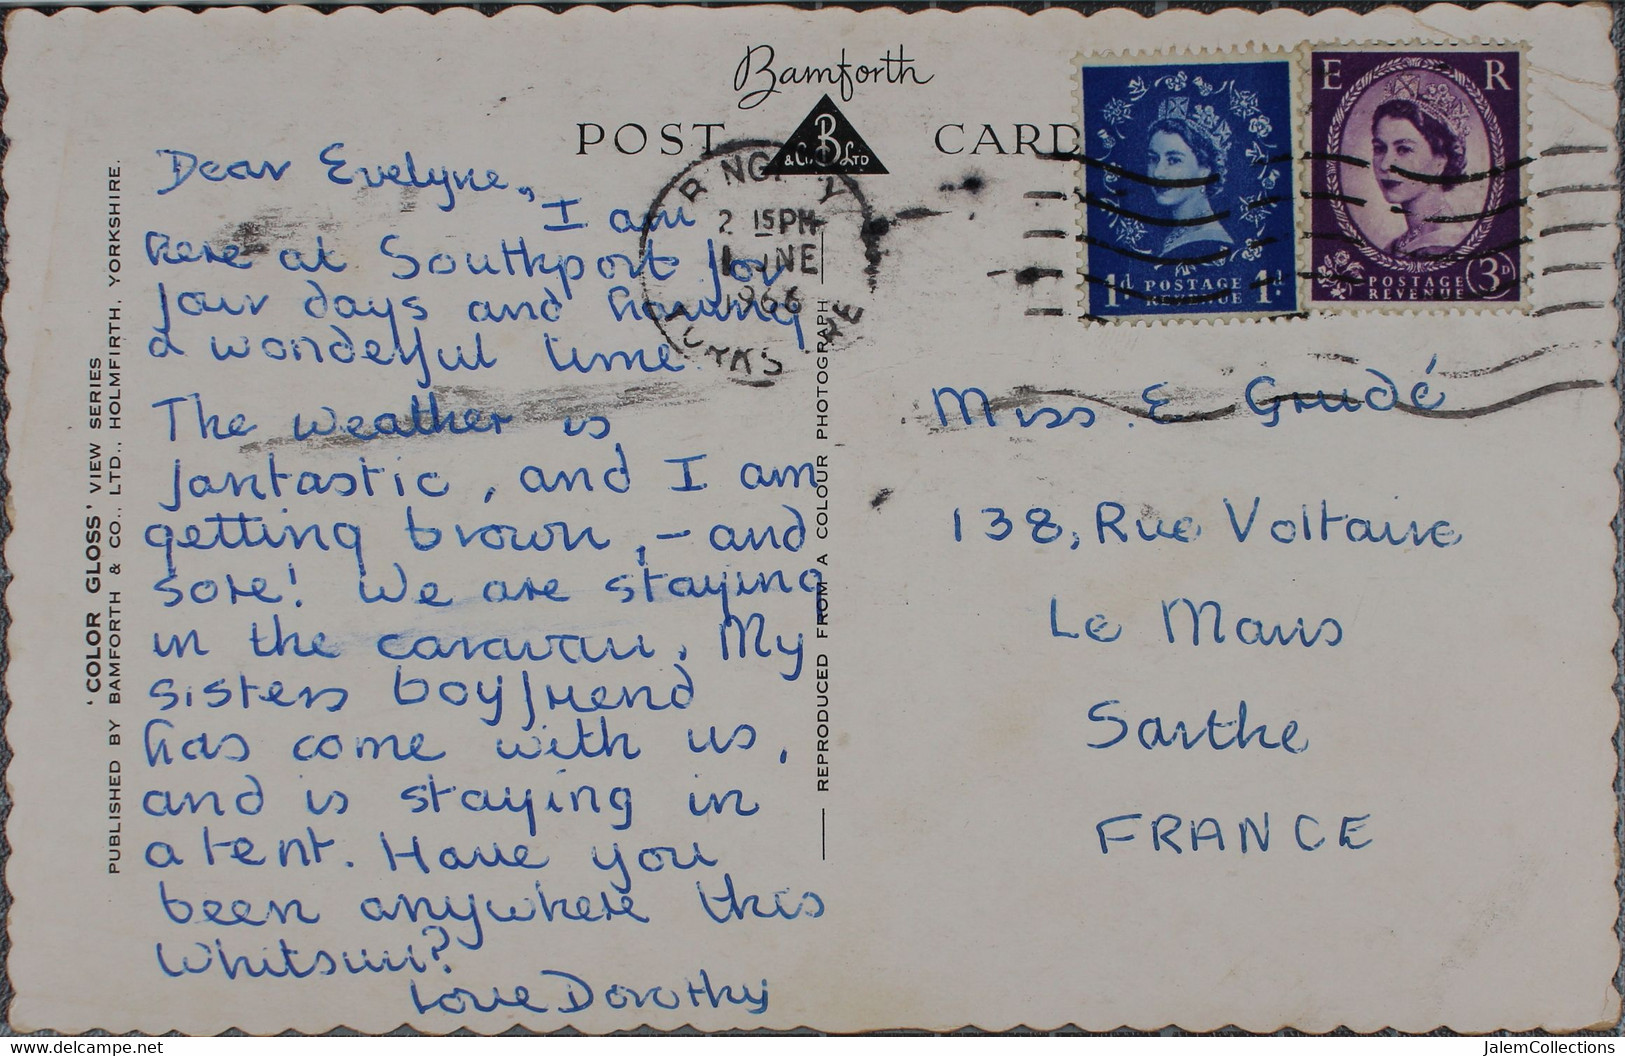 Bamforth
POST CARD
B
& Co. LTD
2 15 PM
1966
1d POSTAGE REVENUE 1d
E R
POSTAGE REVENUE 3D
'COLOR GLOSS' VIEW SERIES
PUBLISHED BY BAMFORTH & CO., LTD., HOLMFIRTH, YORKSHIRE.
REPRODUCED FROM A COLOUR PHOTOGRAPH
Dear Evelyne,
I am
here at Southport for
four days and having
a wonderful time.
The weather is
fantastic, and I am
getting brown, - and
sore! We are staying
in the caravan. My
sisters boyfriend
has come with us,
and is staying in
a tent. Have you
been anywhere this
Whitsun?
Love Dorothy
Miss. E Grudé
138, Rue Voltaire
Le Mans
Sarthe
FRANCE
delcampe.net
JalemCollections